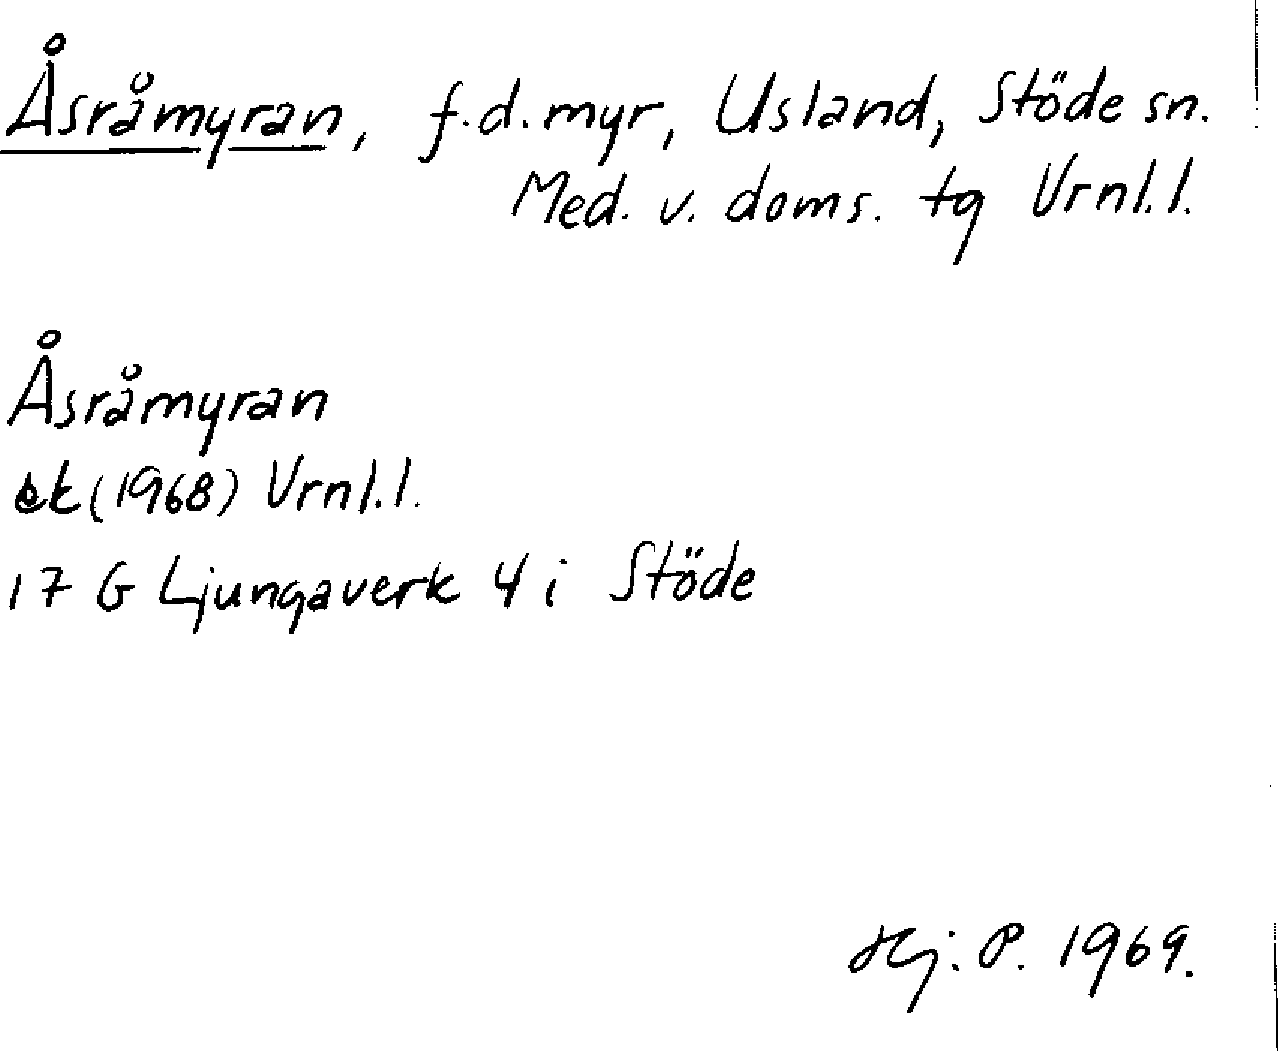 Åsråmyran, f.d. myr, Usland, Stöde sn.
Med. v. doms. tg Vrnl. l.
Åsråmyran
ek (1968) Vrnl. l.
17 G Ljungaverk 4 i Stöde
Hj. P. 1969.